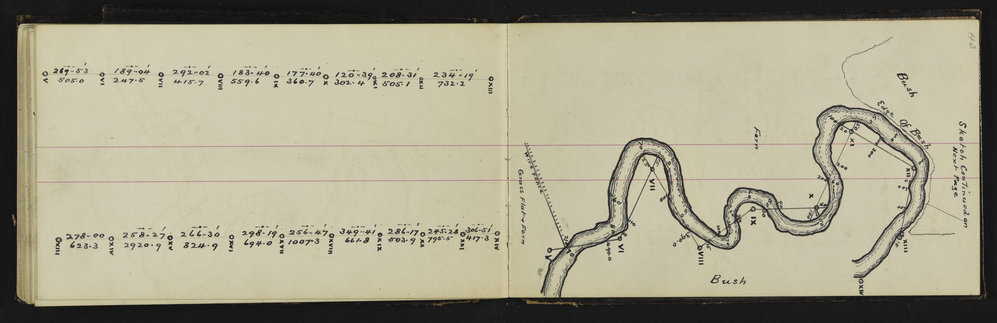 V 269-53' VI 189-04' VII 292-02' VIII 183-40' IX 177-40' X 120-39' XI 208-31' XII 234-19' XIII
505.0 247.5 415.7 559.6 360.7 302.4 505.1 732.2
XIII 278-00 XIV 258-27 XV 266-30 XVI 298-19 XVII 256-47 XVIII 349-41 XIX 286-17 XX 245-28 XXI 306-51' XXIV
623.3 2920.9 824.9 694.0 1007.3 661.8 503.9 795.5 417.3
Bush
Edge Of Bush
Sketch Continued on
Next Page
Fern
Grass Flat & Fern
Bush
V
VI
VII
VIII
IX
X
XI
XII
XIII
XIV